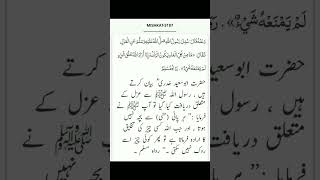 لَمْ يَمْنَعْهُ شَيْءٌ» .
MISHKAT-3187
لَمْ يَمْنَعْهُ شَيْءٌ» . رَوَاهُ مُسْلِم
حضرت ابوسعید خدری ؓ بیان کرتے
ہیں ، رسول اللہ ﷺ سے عزل کے
متعلق دریافت کیا گیا تو آپ ﷺ نے
فرمایا :’’ ہر پانی (منی) سے بچہ نہیں
ہوتا ، اور جب اللہ کسی چیز کی تخلیق
کا ارادہ فرماتا ہے تو پھر کوئی چیز اسے
روک نہیں سکتی ۔‘‘ رواہ مسلم ۔